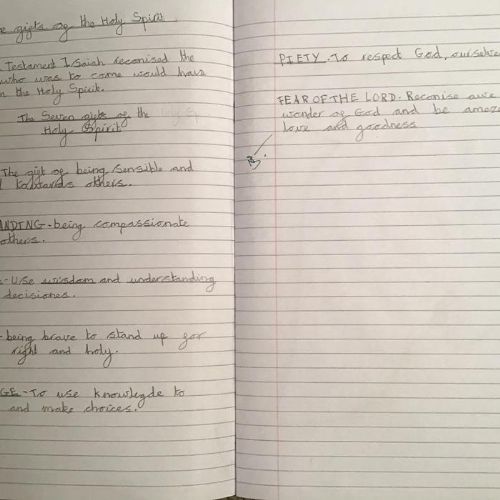 gifts of the Holy Spirit
Testament Isaiah reconised the
who was to come would have
the Holy Spirit.
The Seven gifts of the
Holy Spirit
The gift of being sensible and
towards others.
ANDING - being compassionate
others.
- Use wisdom and understanding
decisiones.
- being brave to stand up for
right and holy.
GE - To use knowlegde to
and make choices.
PIETY - To respect God, ourselve
FEAR OF THE LORD - Reconise awe
wonder of God and be amaz
love and goodness